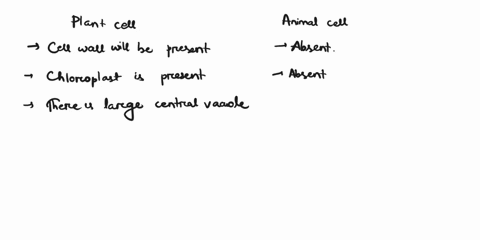 Plant cell Animal cell
→ Cell wall will be present → Absent.
→ Chloroplast is present → Absent
→ There is large central vacuole